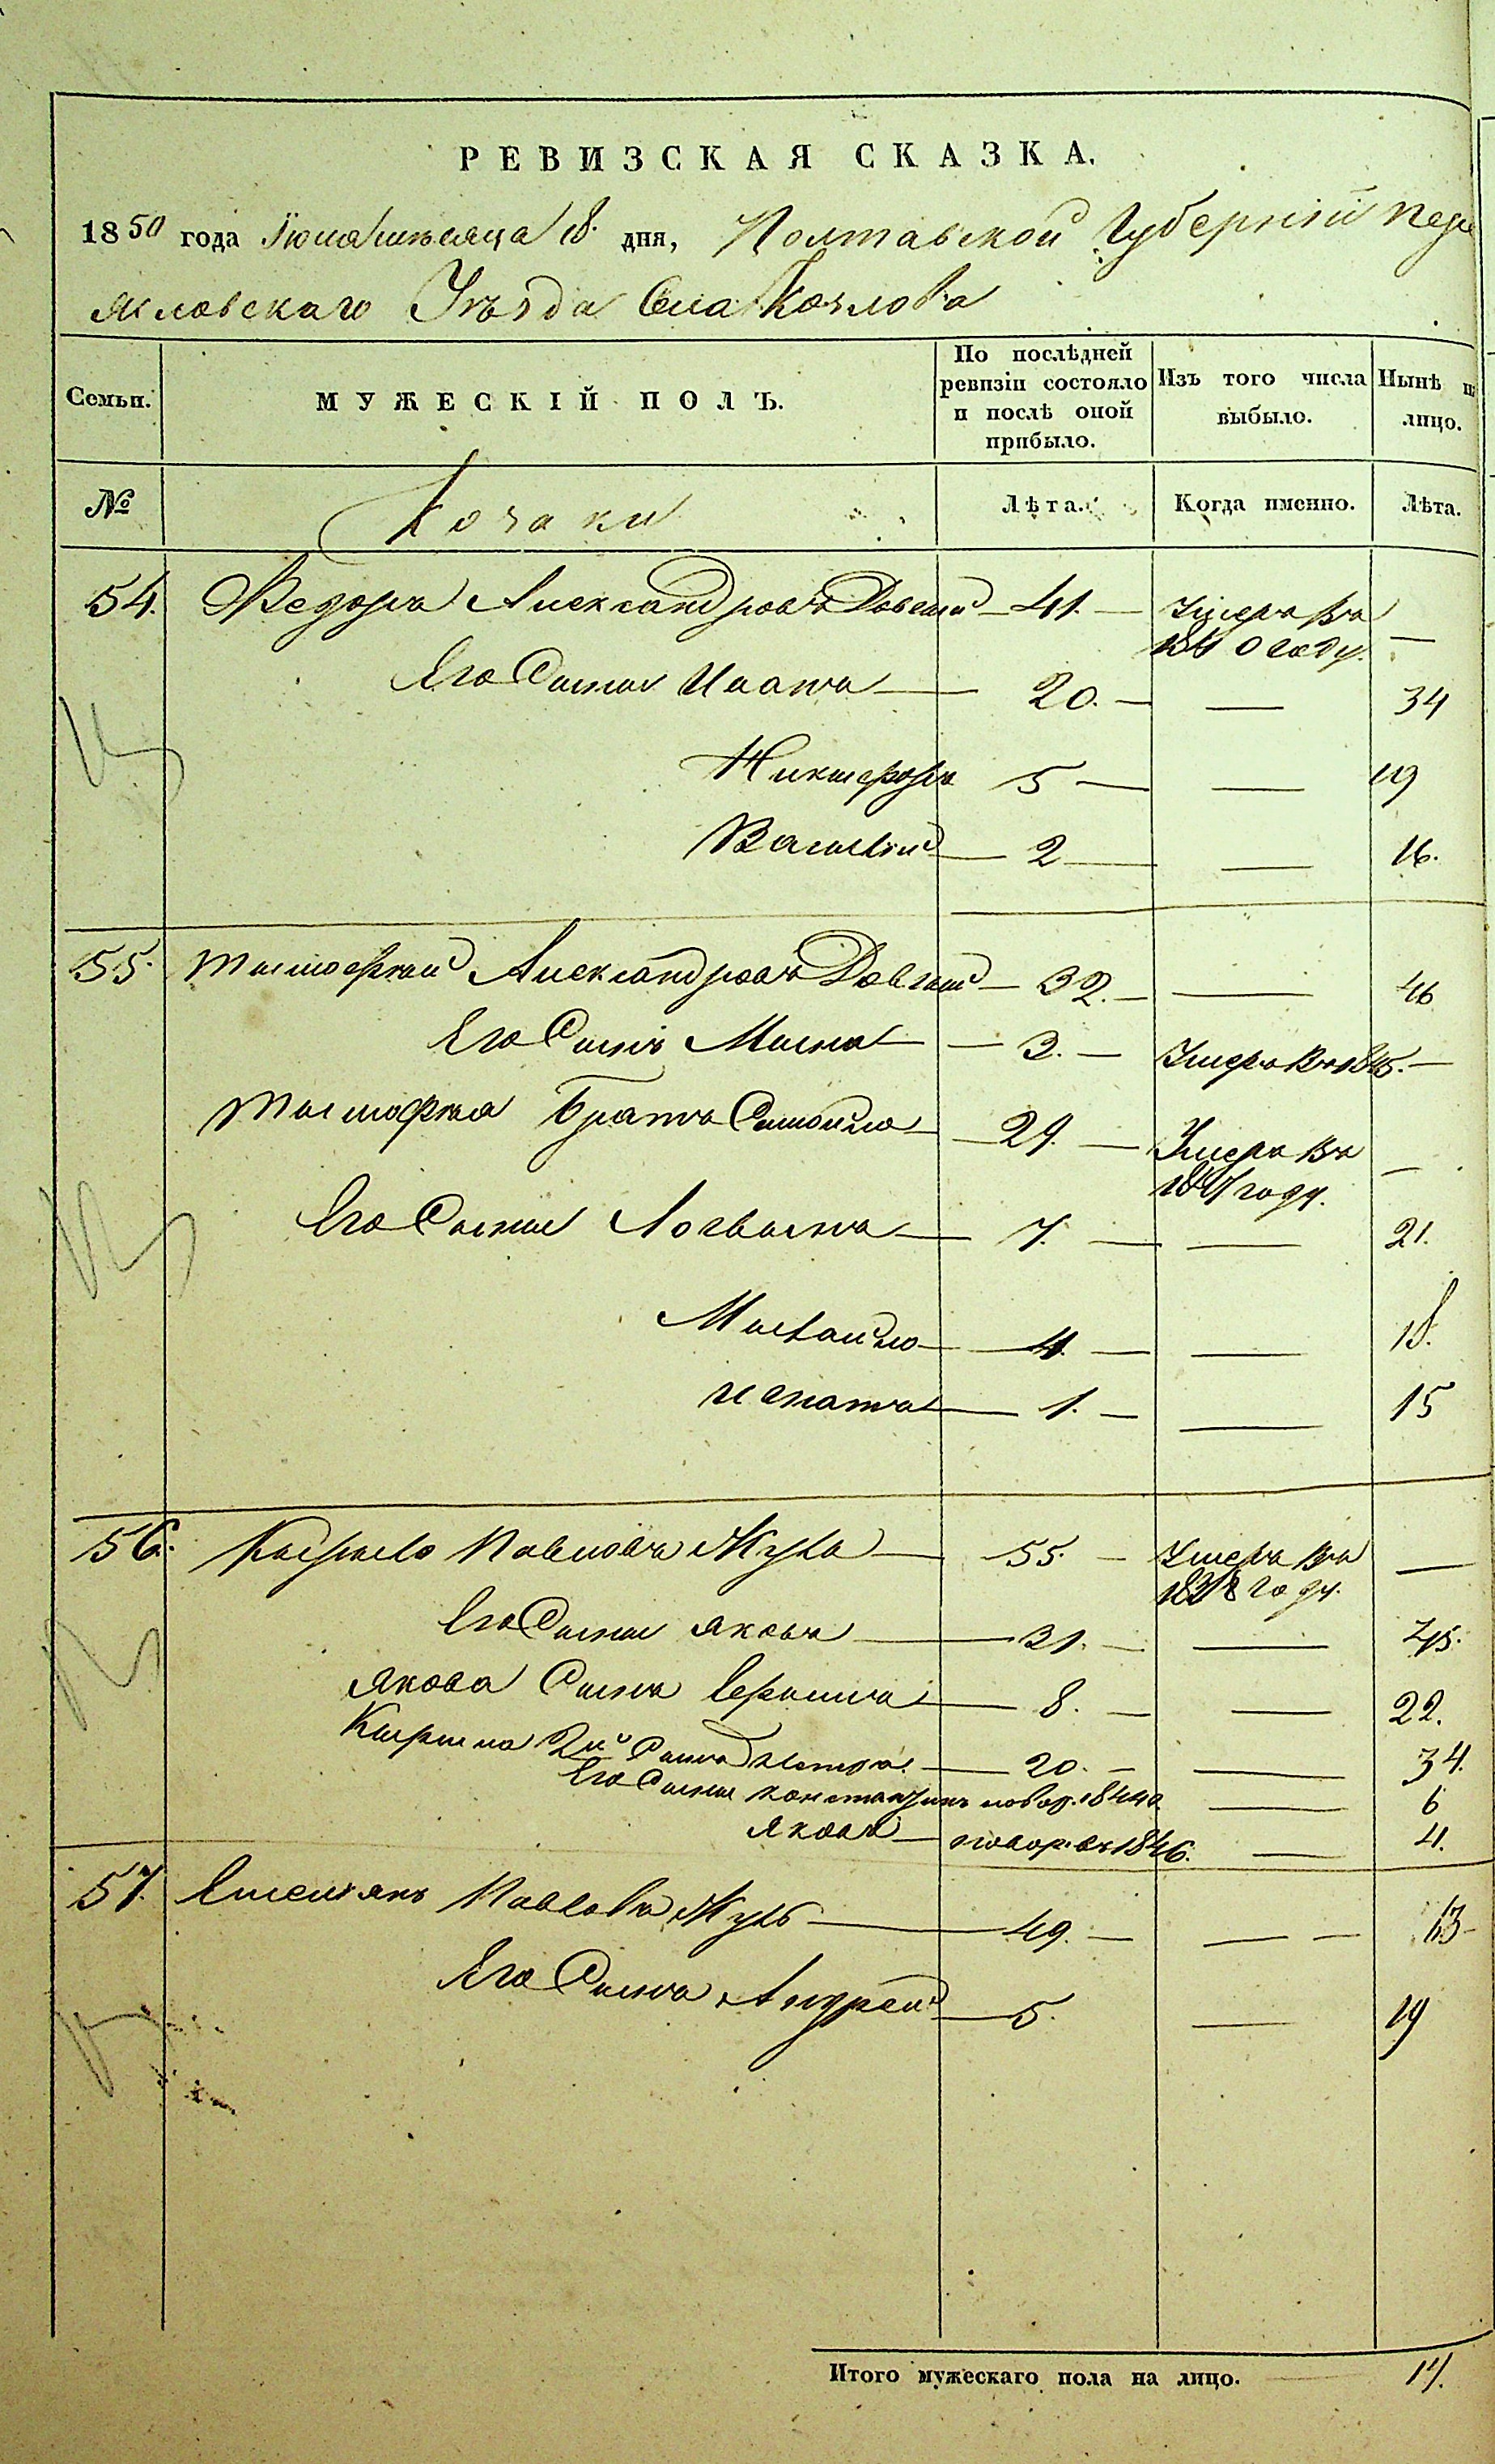 РЕВИЗСКАЯ СКАЗКА.
1850 года Іюня мѣсяца 18. дня, Полтавской Губерніи Пере
яславскаго Уѣзда Села Козлова
Семьи. МУЖЕСКІЙ ПОЛЪ. По послѣдней ревизіи состояло и послѣ оной прибыло. Изъ того числа выбыло. Нынѣ на лицо.
№ Козаки Лѣта. Когда именно. Лѣта.
54. Федоръ Александровъ Довгий — 41. — Умеръ въ 1840 году. —
Его Сыны Игнатъ — 20. — — 34
Никифоръ 5 — — 19
Василий — 2 — — 16.
55. Тимофей Александровъ Довгий — 32. — — 46
Его Сынъ Мина — 3. — Умеръ въ 1845. —
Тимофея братъ Самойло — 29. — Умеръ въ году. —
Его Сыны Логвинъ — 7. — — 21.
Михайло — 4. — — 18.
Игнатъ — 1. — — 15
56. Кирило Павловъ Муха — 55. — Умеръ въ 1838 году. —
Его Сыны Яковъ — 31. — — 45.
Якова Сынъ — 8. — — 22.
Кирила 2й Сынъ Петръ — 20. — — 34.
Его Сыны Константинъ новор. 1844. — 6
Яковъ — новор. въ 1846. — 4.
57. Емельянъ Павловъ Муха — 49. — — — 63
Его Сынъ Андрей — 5. — 19
Итого мужескаго пола на лицо. 14.